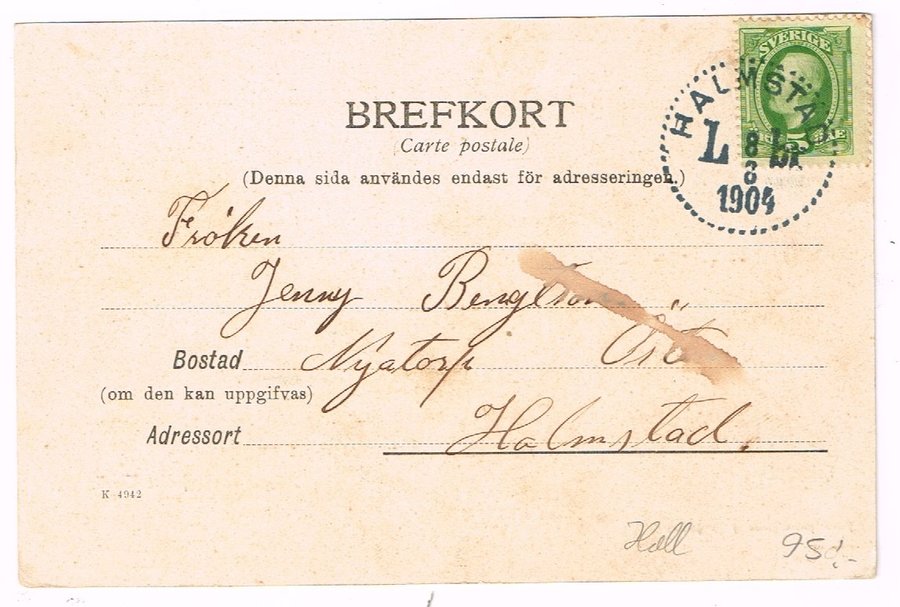 SVERIGE
5 ÖRE
HALMSTA
L
8
8
1904
BREFKORT
(Carte postale)
(Denna sida användes endast för adresseringen.)
Fröken
Jenny Bengtson
Bostad Nyatorp
(om den kan uppgifvas)
Adressort Halmstad.
K 4942
Hall 95:-